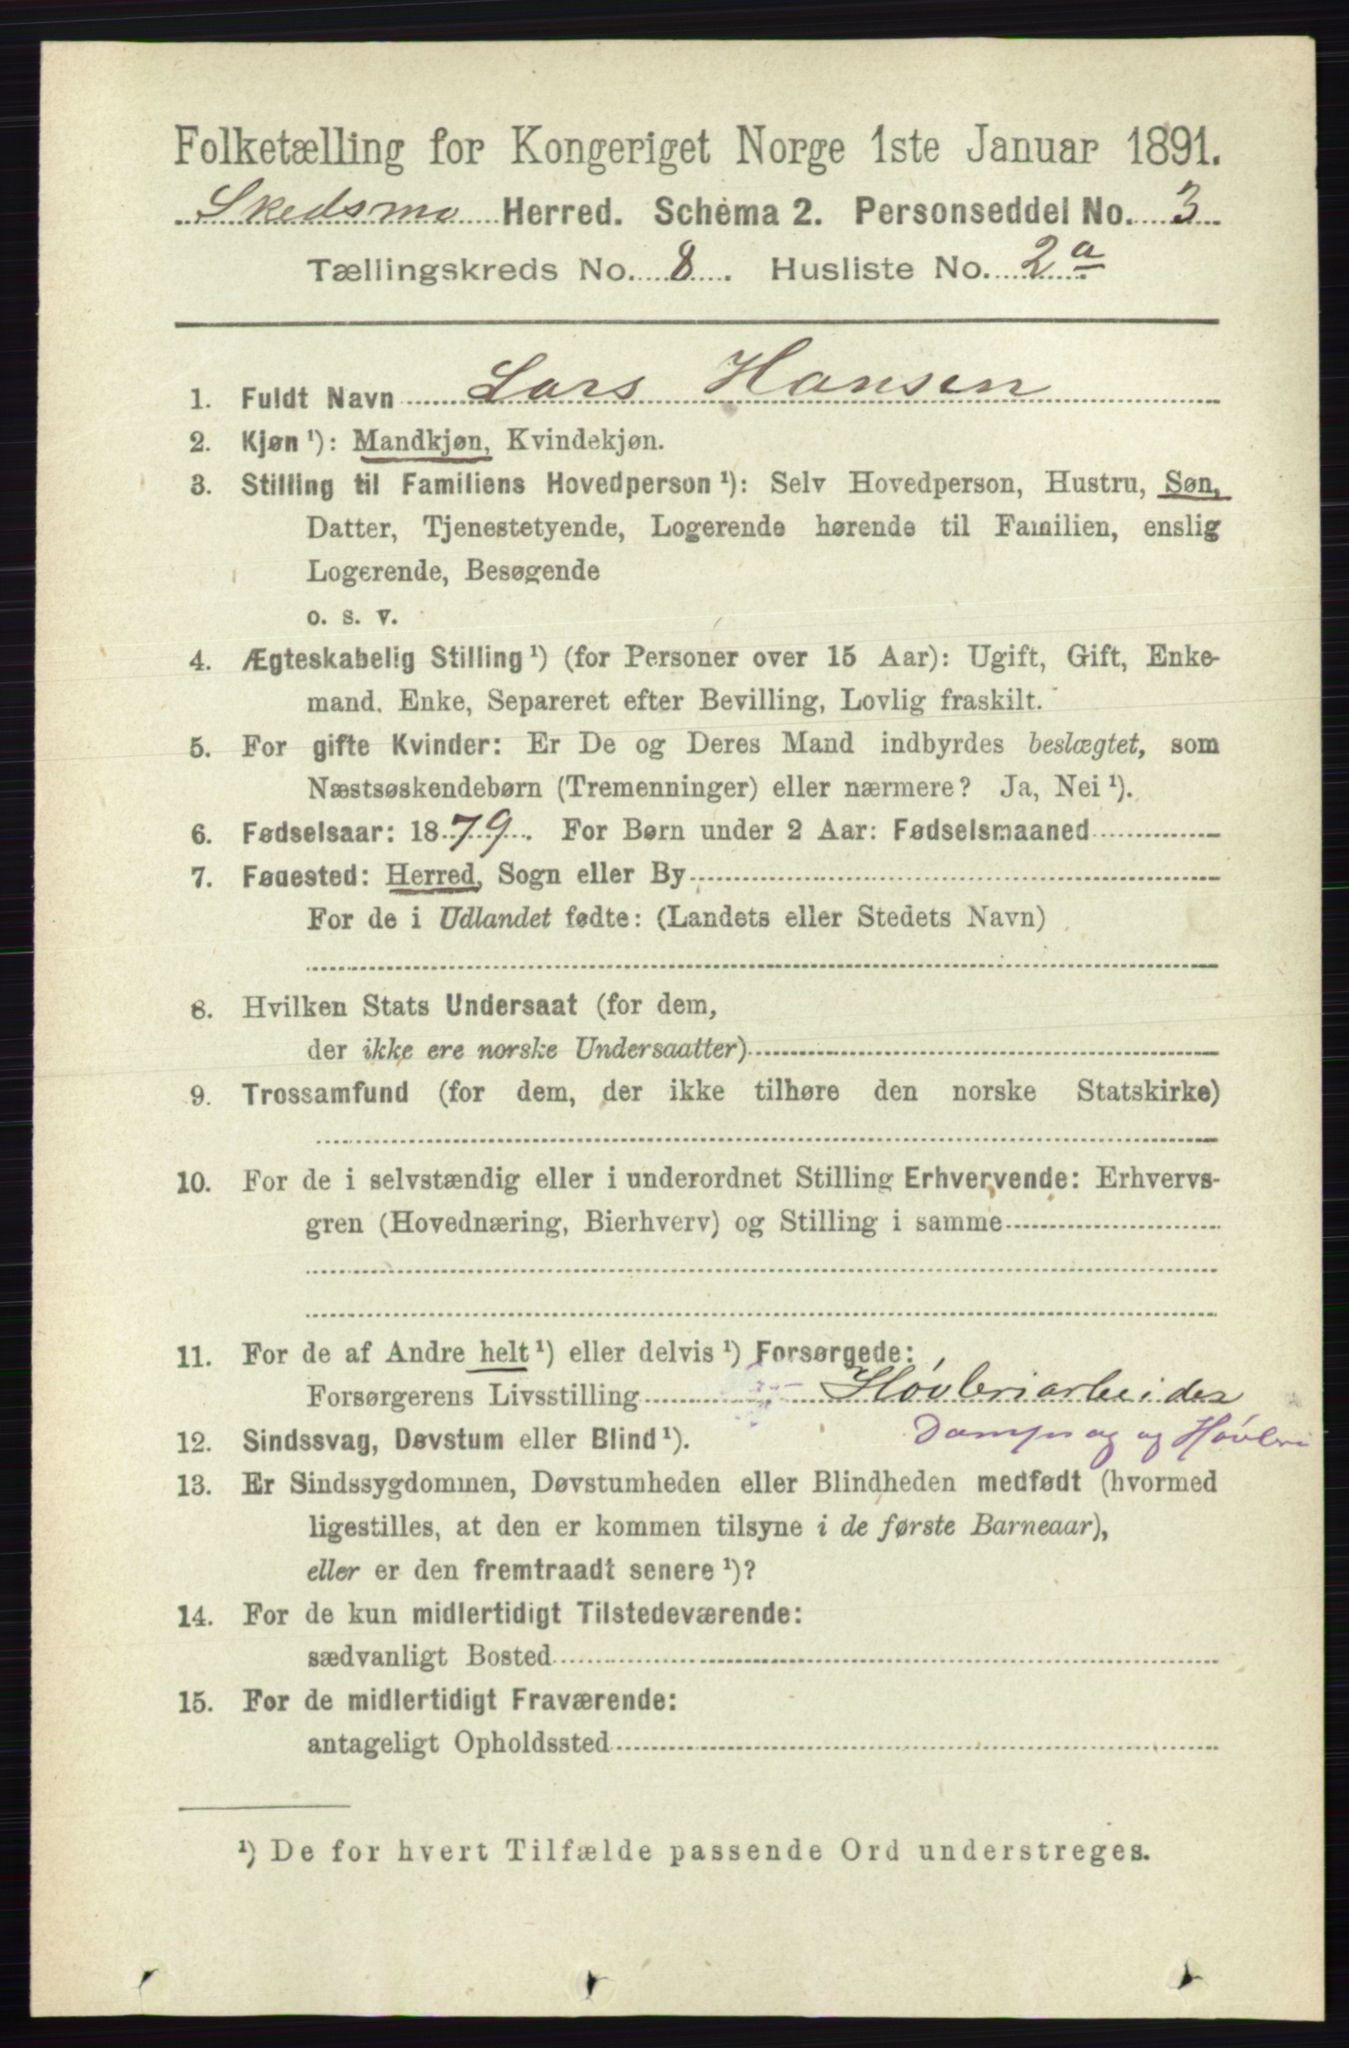 Folketælling for Kongeriget Norge 1ste Januar 1891.
Skedsmo Herred. Schema 2. Personseddel No. 3
Tællingskreds No. 8. Husliste No. 2a
1. Fuldt Navn Lars Hansen
2. Kjøn ¹): Mandkjøn, Kvindekjøn.
3. Stilling til Familiens Hovedperson ¹): Selv Hovedperson, Hustru, Søn,
Datter, Tjenestetyende, Logerende hørende til Familien, enslig
Logerende, Besøgende
o. s. v.
4. Ægteskabelig Stilling ¹) (for Personer over 15 Aar): Ugift, Gift, Enke-
mand. Enke, Separeret efter Bevilling, Lovlig fraskilt.
5. For gifte Kvinder: Er De og Deres Mand indbyrdes beslægtet, som
Næstsøskendebørn (Tremenninger) eller nærmere? Ja, Nei ¹).
6. Fødselsaar: 1879. For Børn under 2 Aar: Fødselsmaaned
7. Føđested: Herred, Sogn eller By
For de i Udlandet fødte: (Landets eller Stedets Navn)
8. Hvilken Stats Undersaat (for dem,
der ikke ere norske Undersaatter)
9. Trossamfund (for dem, der ikke tilhøre den norske Statskirke)
10. For de i selvstændig eller i underordnet Stilling Erhvervende: Erhvervs-
gren (Hovednæring, Bierhverv) og Stilling i samme
11. For de af Andre helt ¹) eller delvis ¹) Forsørgede:
Forsørgerens Livsstilling Høvleriarbeider
12. Sindssvag, Døvstum eller Blind ¹). Dampsag og Høvleri
13. Er Sindssygdommen, Døvstumheden eller Blindheden medfødt (hvormed
ligestilles, at den er kommen tilsyne i de første Barneaar),
eller er den fremtraadt senere ¹)?
14. For de kun midlertidigt Tilstedeværende:
sædvanligt Bosted
15. For de midlertidigt Fraværende:
antageligt Opholdssted
¹) De for hvert Tilfælde passende Ord understreges.